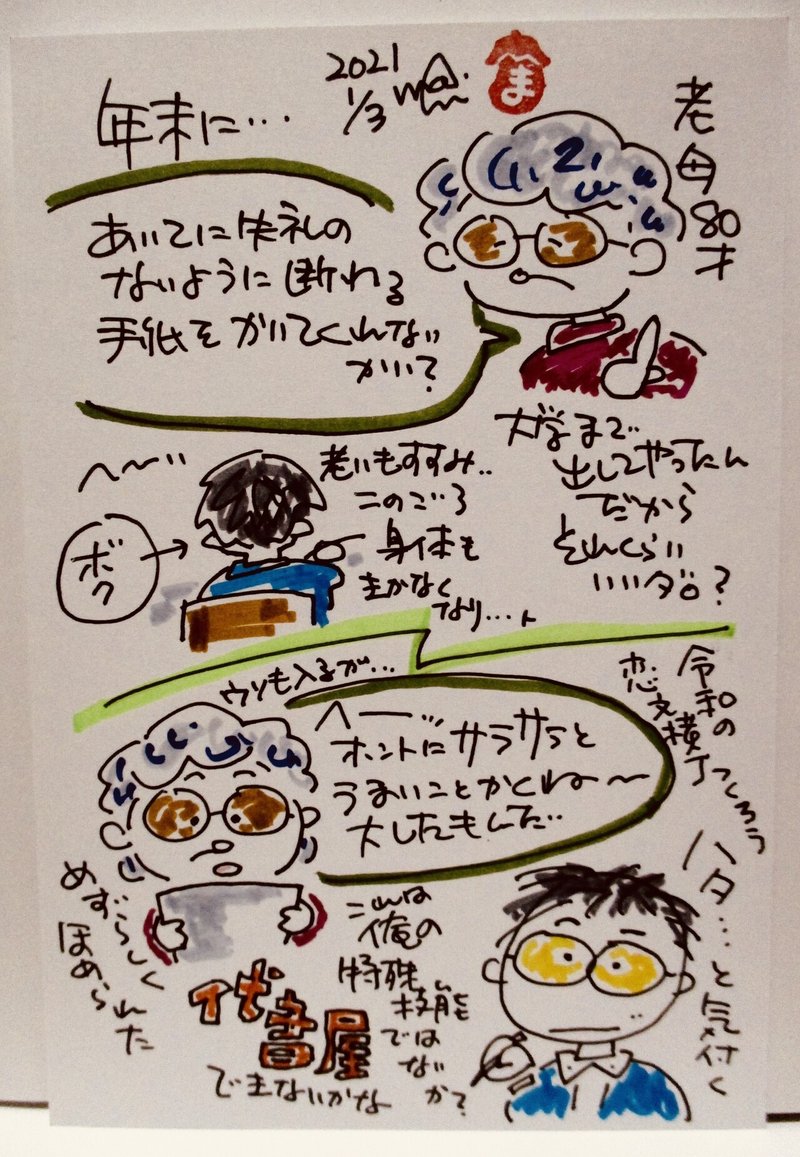 2021
1/3
ま
年末に…
老母80才
あいてに失礼の
ないように断わる
手紙をかいてくれない
かい?
大学まで
出してやったん
だから
それくらい
いいダロ?
へ〜
ボク
老いもすすみ..
このごろ
身体も
きかなく
なり…、
ウソも入るが…
へー…
ホントにサラサラと
うまいことかくね〜
大したもんだ…
令和の
恋文横丁つくろう
めずらしく
ほめられた
これは
俺の
特殊
技能
では
ないか?
ハタ…と気付く
代書屋
できないかな